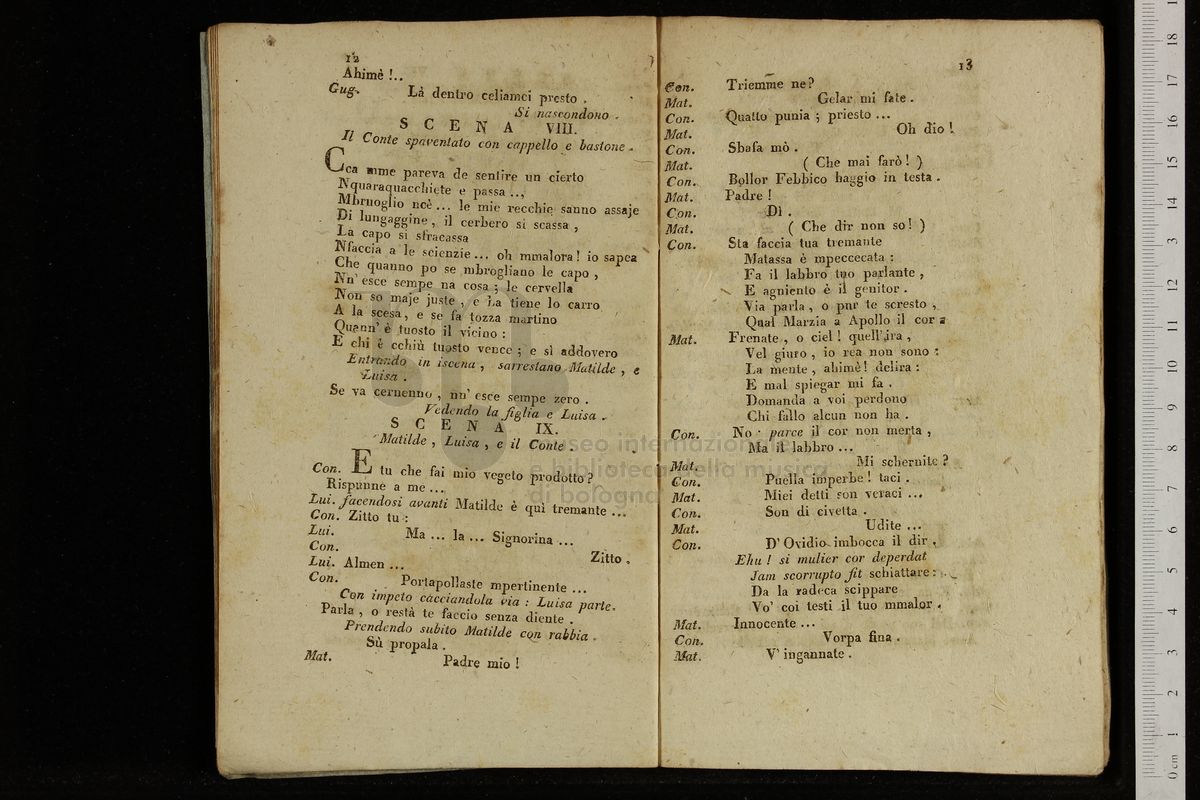 12
Ahimè !..
Gug. Là dentro celiamci presto .
Si nascondono .
S C E N A VIII.
Il Conte spaventato con cappello e bastone .
Cca mme pareva de sentire un cierto
Nquaraquacchiete e passa ...
Mbruoglio ncè ... le mie recchie sanno assaje
Di lungaggine , il cerbero si scassa ,
La capo si sfracassa
Nfaccia a le scienzie ... oh mmalora ! io sapea
Che quanno po se mbrogliano le capo ,
Nn' esce sempe na cosa ; le cervella
Non so maje juste , e La tiene lo carro
A la scesa , e se fa tozza martino
Quann' è tuosto il vicino :
E chi è cchiù tuosto vence ; e sì addovero
Entrando in iscena , s'arrestano Matilde , e
Luisa .
Se va cernenno , nn' esce sempe zero .
Vedendo la figlia e Luisa .
S C E N A IX.
Matilde , Luisa , e il Conte .
Con. E tu che fai mio vegeto prodotto ?
Rispunne a me ...
Lui. facendosi avanti Matilde è quì tremante ...
Con. Zitto tu :
Lui. Ma ... la ... Signorina ...
Con. Zitto .
Lui. Almen ...
Con. Portapollaste mpertinente ...
Con impeto cacciandola via : Luisa parte.
Parla , o restà te faccio senza diente .
Prendendo subito Matilde con rabbia .
Sù propala .
Mat. Padre mio !
13
Con. Triemme ne ?
Mat. Gelar mi fate .
Con. Quatto punia ; priesto ...
Mat. Oh dio !
Con. Sbafa mò .
Mat. ( Che mai farò ! )
Con. Bollor Febbico haggio in testa .
Mat. Padre !
Con. Dì .
Mat. ( Che dir non so ! )
Con. Sta faccia tua tremante
Matassa è mpeccecata :
Fa il labbro tuo parlante ,
E agniento è il genitor .
Via parla , o pur te scresto ,
Qual Marzia a Apollo il cor :
Mat. Frenate , o ciel ! quell' ira ,
Vel giuro , io rea non sono :
La mente , ahimè ! delira :
E mal spiegar mi fa .
Domanda a voi perdono
Chi fallo alcun non ha .
Con. No : parce il cor non merta ,
Ma il labbro ...
Mat. Mi schernite ?
Con. Puella imperbe ! taci .
Mat. Miei detti son veraci ...
Con. Son di civetta .
Mat. Udite ...
Con. D' Ovidio imbocca il dir .
Ehu ! si mulier cor deperdat
Jam scorrupto fit schiattare :
Da la radeca scippare
Vo' coi testi il tuo mmalor .
Mat. Innocente ...
Con. Vorpa fina .
Mat. V' ingannate .
museo internazionale
e biblioteca della musica
di bologna